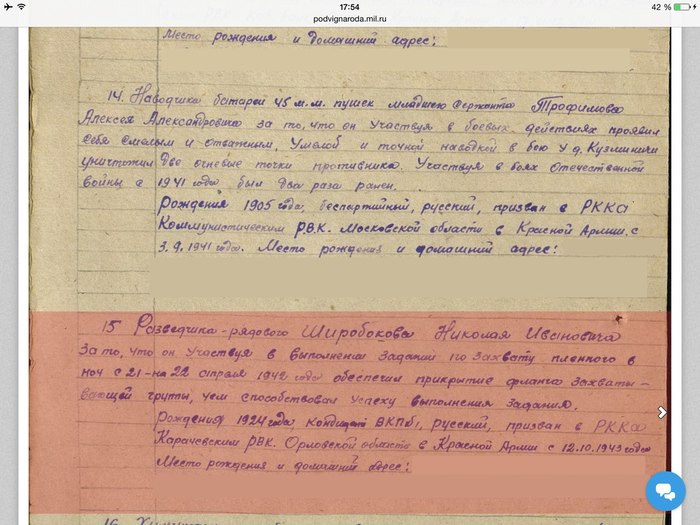 17:54
42 %
podvignaroda.mil.ru
Место рождения и домашний адрес:
14. Наводчика батареи 45 м.м. пушек младшего сержанта Трофимова
Алексея Александровича за то, что он участвуя в боевых действиях проявил
себя смелым и отважным, умелой и точной наводкой в бою у д. Кузминки
уничтожил две огневые точки противника. Участвуя в боях Отечественной
войны с 1941 года был два раза ранен.
Рождения 1905 года, беспартийный, русский, призван в РККА
Коммунистическим РВК. Московской области в Красной Армии с
3.9.1941 года. Место рождения и домашний адрес:
15 Разведчика-рядового Широбокова Николая Ивановича
За то, что он участвуя в выполнении задания по захвату пленного в
ноч с 21-на 22 апреля 1942 года обеспечил прикрытие фланга захваты-
вающей группы, чем способствовал успеху выполнения задания.
Рождения 1924 года, кандидат ВКП(б), русский, призван в РККА
Карачевским РВК. Орловской области в Красной Армии с 12.10.1943 года
Место рождения и домашний адрес:
16